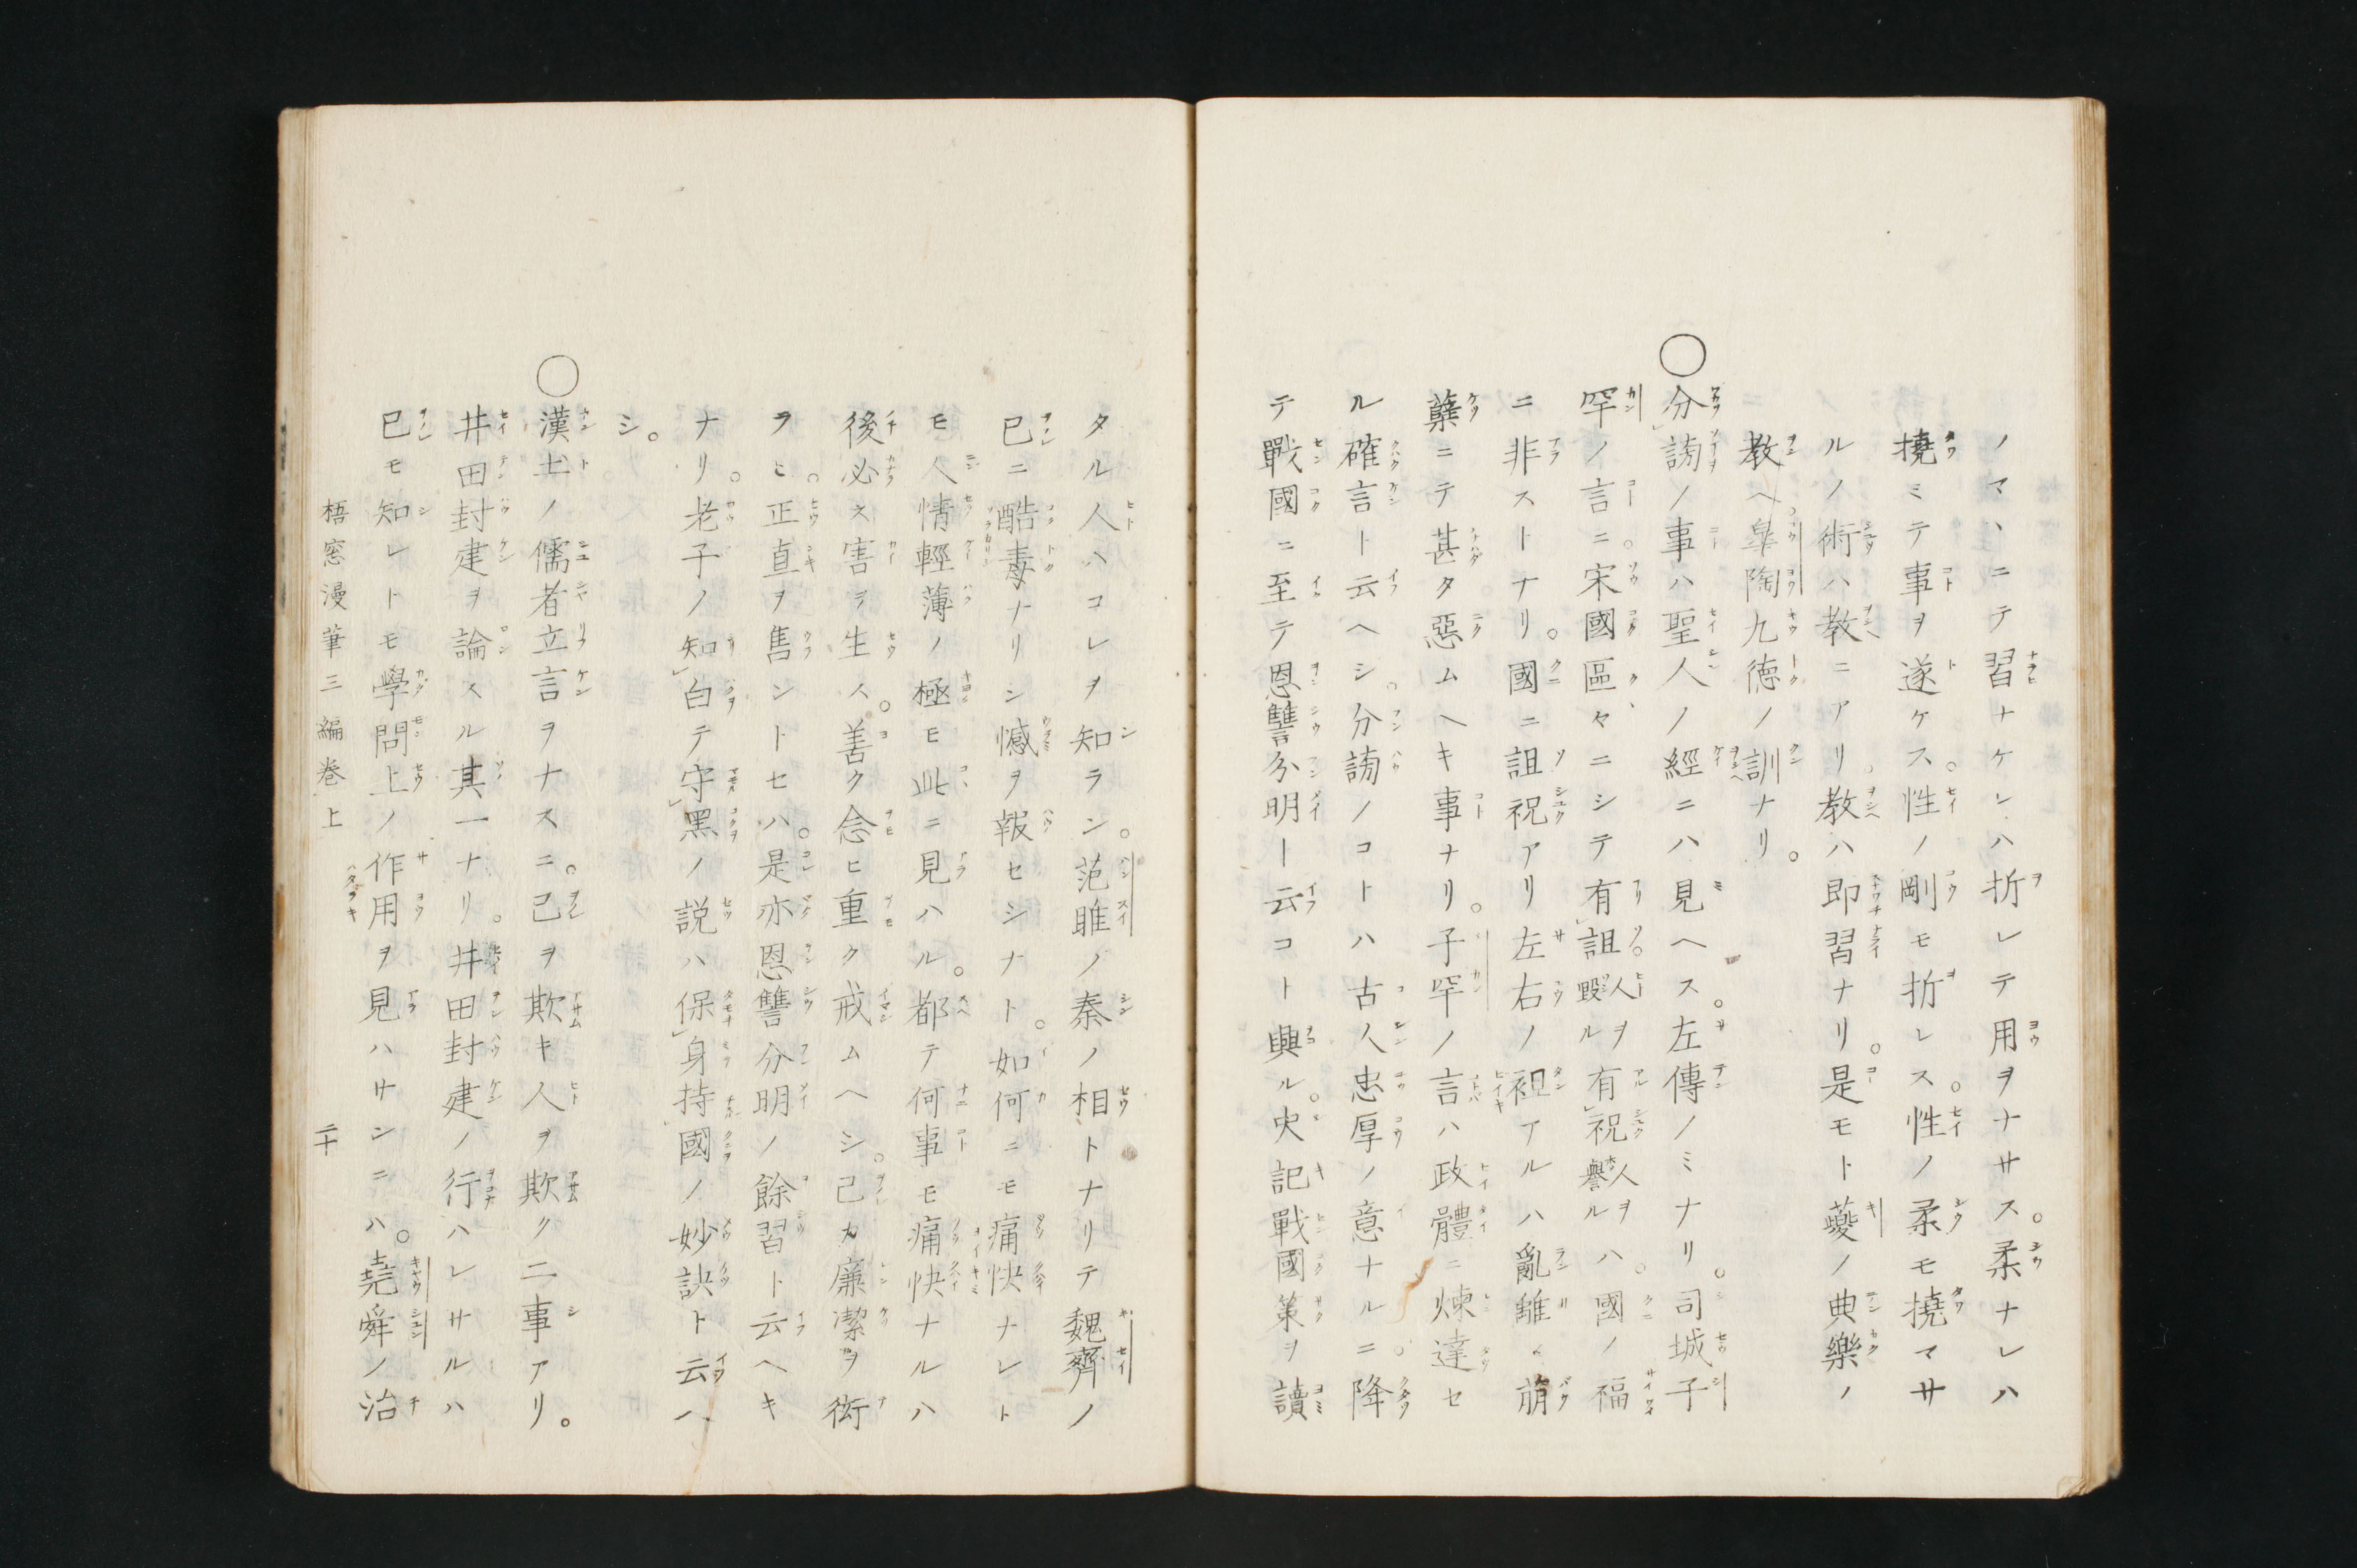 ノマヽニテ習ナケレハ折レテ用ヲナサス。柔ナレハ
撓ミテ事ヲ遂ケス。性ノ剛モ折レス。性ノ柔モ撓マサ
ルノ術ハ教ニアリ。教ハ即習ナリ。是モト夔ノ典樂ノ
教ヘ。皐陶九徳ノ訓ナリ。
○分謗ノ事ハ聖人ノ經ニハ見ヘス。左傳ノミナリ。司城子
罕ノ言ニ。宋國區々ニシテ有詛人ヲ毀ル有祝人ヲ譽ルハ。國ノ福
ニ非ストナリ。國ニ詛祝アリ左右ノ袒アルハ亂離ノ萠
蘖ニテ甚タ惡ムヘキ事ナリ。子罕ノ言ハ政體ニ煉達セ
ル確言ト云ヘシ。分謗ノコトハ古人忠厚ノ意ナルニ。降
テ戰國ニ至テ恩讐分明ト云コト興ル。史記戰國策ヲ讀
タル人ハコレヲ知ラン。范雎ノ秦ノ相トナリテ魏齊ノ
己ニ酷毒ナリシ憾ヲ報セシナト。如何ニモ痛快ナレト
モ人情輕薄ノ極モ此ニ見ハル。都テ何事モ痛快ナルハ
後必ス害ヲ生ス。善ク念ヒ重ク戒ムヘシ。己カ廉潔ヲ衒
ヲヒ。正直ヲ售ントセハ。是亦恩讐分明ノ餘習ト云ヘキ
ナリ。老子ノ知白テ守黑ノ説ハ保身持國ノ妙訣ト云ヘ
シ。
○漢土ノ儒者立言ヲナスニ。己ヲ欺キ人ヲ欺ク二事アリ。
井田封建ヲ論スル其一ナリ。井田封建ノ行ハレサルハ
己モ知レトモ學問上ノ作用ヲ見ハサンニハ。堯舜ノ治
梧窓漫筆三編巻上 二十